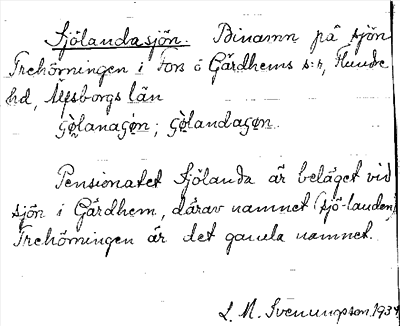 Sjölandasjön. Binamn på sjön
Trehörningen i Fors o Gärdhems s:r, Flundre
hd, Älfsborgs län
Pensionatet Sjölanda är beläget vid
sjön i Gärdhem, därav namnet (sjö-landen)
Trehörningen är det gamla namnet.
L. M. Svenungsson 1934